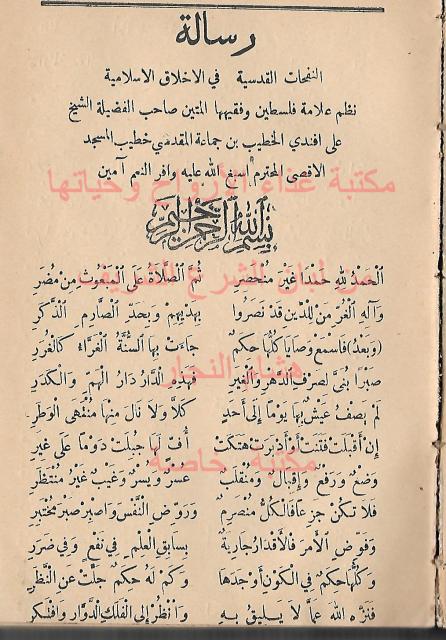 رسالة
النفحات القدسية في الاخلاق الاسلامية
نظم علامة فلسطين وفقيهها المتين صاحب الفضيلة الشيخ
على افندي الخطيب بن جماعة المقدسي خطيب المسجد
الاقصى المحترم اسبغ الله عليه وافر النعم آمين
مكتبة غذاء الأرواح وحياتها
بسم الله الرحمن الرحيم
الْحَمْدُ لِلَّهِ حَمْدًا غَيْرَ مُنْحَصِرِ ثُمَّ الصَّلَاةُ عَلَى الْمَبْعُوثِ مِنْ مُضَرِ
وَآلِهِ الْغُرِّ مَنْ لِلدِّينِ قَدْ نَصَرُوا بِهَدْيِهِمْ وَبِحَدِّ الصَّارِمِ الذَّكَرِ
(وَبَعْدُ) فَاسْمَعْ وَصَايَا كُلُّهَا حِكَمٌ جَاءَتْ بِهَا السُّنَّةُ الْغَرَّاءُ كَالْغُرَرِ
صَبْرًا بُنَيَّ لِصَرْفِ الدَّهْرِ وَالْغِيَرِ فَهَذِهِ الدَّارُ دَارُ الْهَمِّ وَالْكَدَرِ
هشام النجار
لَمْ يَصْفُ عَيْشٌ بِهَا يَوْمًا إِلَى أَحَدٍ كَلَّا وَلَا نَالَ مِنْهَا مُنْتَهَى الْوَطَرِ
إِنْ أَقْبَلَتْ فَتَنَتْ أَوْ أَدْبَرَتْ هَتَكَتْ أُفٍّ لَهَا جُبِلَتْ دَوْمًا عَلَى غِيَرِ
مكتبة خاصة
وَضْعٌ وَرَفْعٌ وَإِقْبَالٌ وَمُنْقَلَبٌ عُسْرٌ وَيُسْرٌ وَغَيْبٌ غَيْرُ مُنْتَظَرِ
فَلَا تَكُنْ جَزِعًا فَالْكُلُّ مُنْصَرِمٌ وَرَوِّضِ النَّفْسَ وَاصْبِرْ صَبْرَ مُخْتَبِرِ
وَفَوِّضِ الْأَمْرَ فَالْأَقْدَارُ جَارِيَةٌ بِسَابِقِ الْعِلْمِ فِي نَفْعٍ وَفِي ضَرَرِ
وَكُلُّهَا حِكَمٌ فِي الْكَوْنِ أَوْجَدَهَا وَكَمْ لَهُ حِكَمٌ جَلَّتْ عَنِ النَّظَرِ
فَنَزِّهِ اللهَ عَمَّا لَا يَلِيقُ بِهِ وَانْظُرْ إِلَى الْفَلَكِ الدَّوَّارِ وَافْتَكِرِ